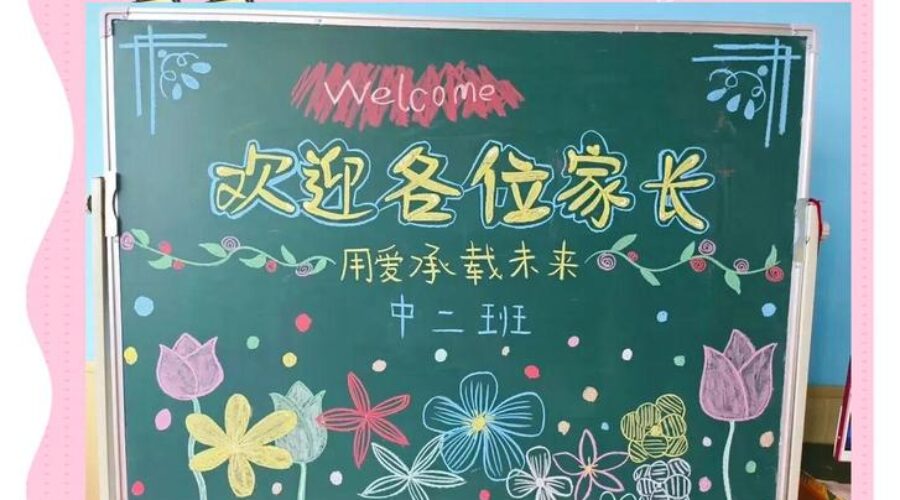 Welcome
欢迎各位家长
用爱承载未来
中二班